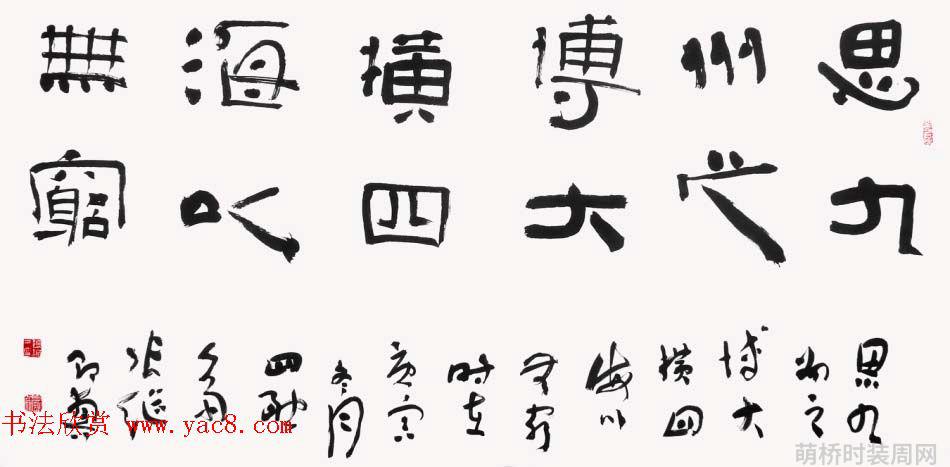 思九
州之
博大
橫四
海以
無窮
思九
州之
博大
横四
海以
無窮
时在
庚寅
冬月
张继
书法欣赏 www.yac8.com
萌桥时装周网